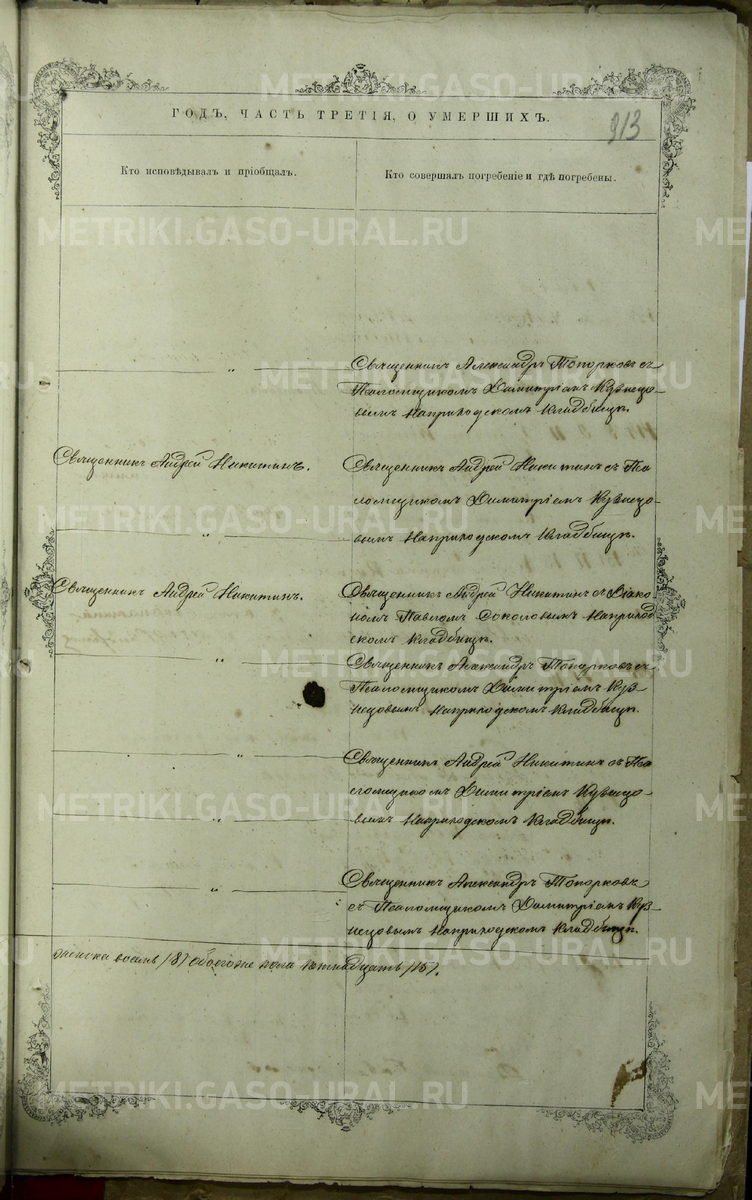 METRIKI.GASO-URAL.RU
ГОДЪ, ЧАСТЬ ТРЕТІЯ, О УМЕРШИХЪ.
913
Кто исповѣдывалъ и пріобщалъ.
Кто совершалъ погребеніе и гдѣ погребены.
Священникъ Александръ Топорковъ съ
Псаломщикомъ Димитріемъ Кузнецо-
вымъ на приходскомъ кладбищѣ.
Священникъ Андрей Никитинъ.
Священникъ Андрей Никитинъ съ Пса
ломщикомъ Димитріемъ Кузнецо-
вымъ на приходскомъ кладбищѣ.
Священникъ Андрей Никитинъ.
Священникъ Андрей Никитинъ съ Діако-
номъ Павломъ Соколовымъ на приход
скомъ кладбищѣ.
Священникъ Александръ Топорковъ съ
Псаломщикомъ Димитріемъ Куз-
нецовымъ на приходскомъ кладбищѣ.
Священникъ Андрей Никитинъ съ Пса
ломщикомъ Димитріемъ Кузнецо-
вымъ на приходскомъ кладбищѣ.
Священникъ Александръ Топорковъ
съ Псаломщикомъ Димитріемъ Куз-
нецовымъ на приходскомъ кладбищѣ.
женска восемь /8/ обоего же пола пятнадцать /15/.